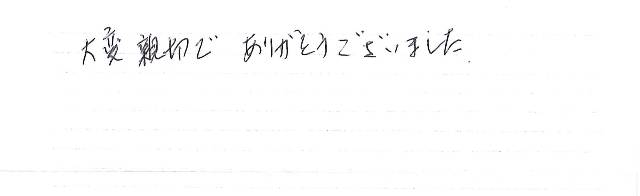 大変親切で ありがとうございました